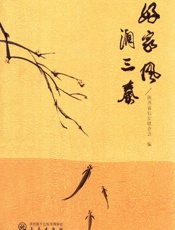 好家风
润三秦
陕西省妇女联合会 编